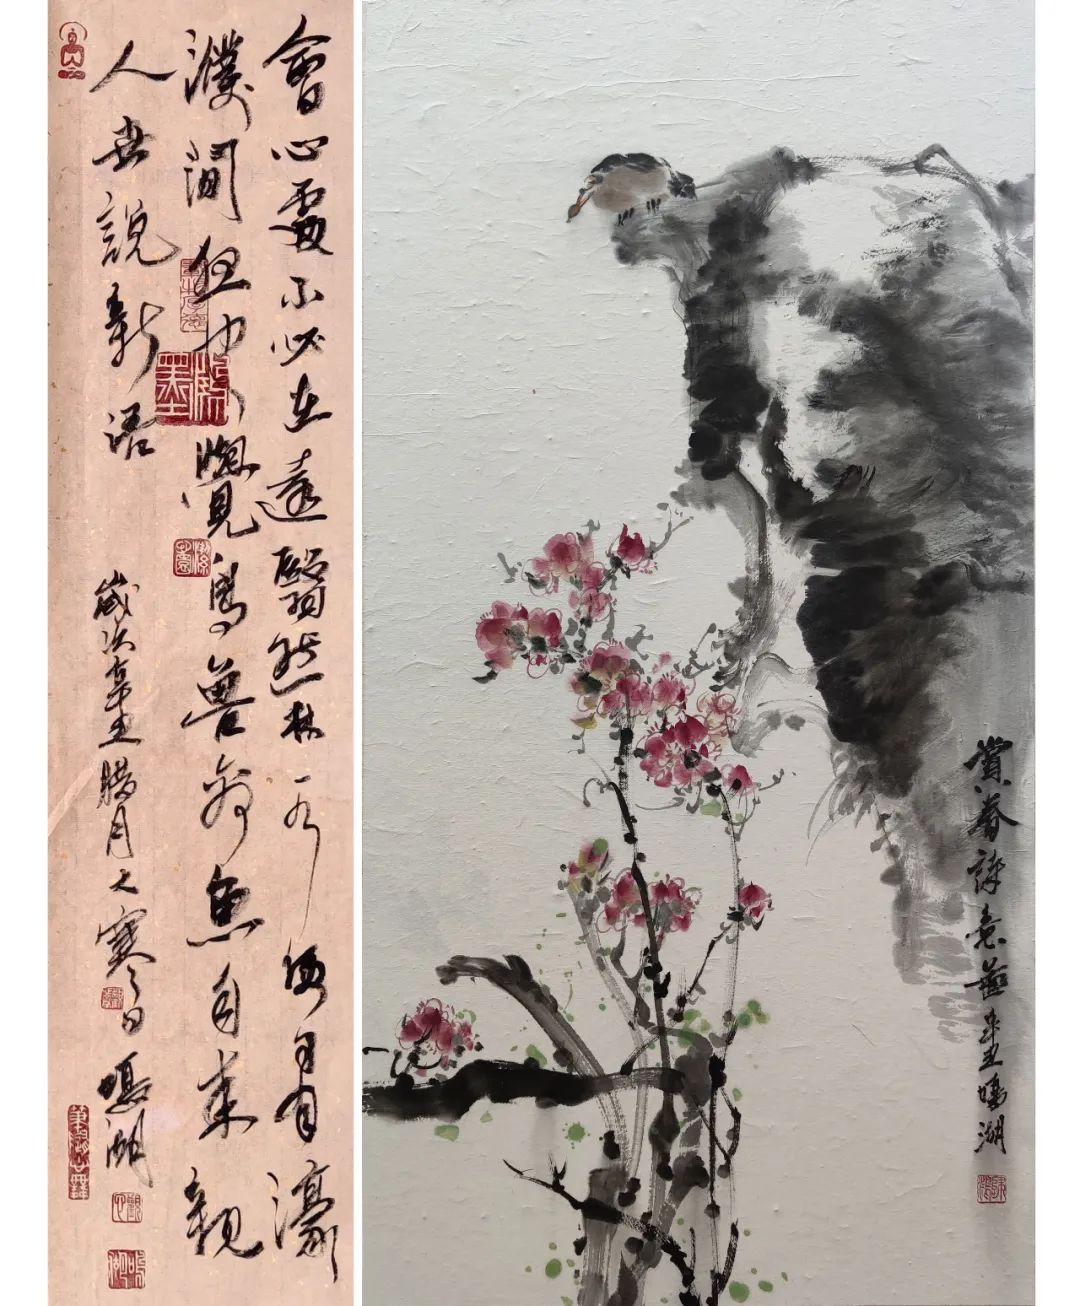 會心處不必在遠翳然林水便自有濠
濮間想也覺鳥獸禽魚自來親
人世說新語
歲次辛丑腊月大寒之日鳴湖
賞春詩意圖辛丑鳴湖